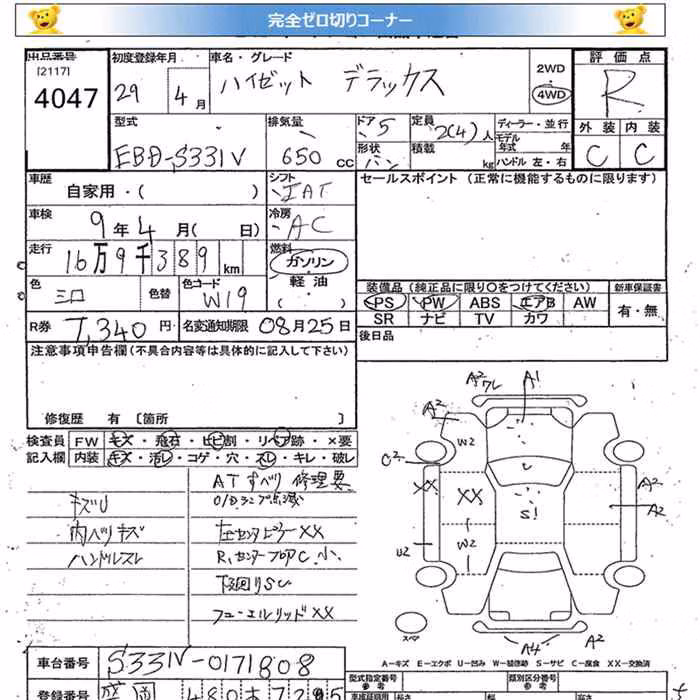 完全ゼロ切りコーナー
出品番号
[2117]
4047
初度登録年月
29
4月
車名・グレード
ハイゼット デラックス
2WD
4WD
評価点
R
外装 内装
C C
型式
EBD-S331V
排気量
650 CC
ドア
5
形状
バン
定員
2(4)人
積載
kg
ディーラー・並行
モデル
年式 年
ハンドル 左・右
車歴
自家用・( )
シフト
IAT
車検
9年4月( 日)
冷房
AC
走行
16万9千389km
燃料
ガソリン
軽油
( )
色
シロ
色替
色コード
W19
R券
7,340円
名変通知期限 08月25日
セールスポイント (正常に機能するものに限ります)
装備品 (純正品に限り〇をつけてください)
PS PW ABS エアB AW
SR ナビ TV カワ
新車保証書
有・無
後日品
注意事項申告欄(不具合内容等は具体的に記入して下さい)
修復歴 有 〔箇所 〕
検査員 FW キズ・飛石・ヒビ割・リペア跡・×要
記入欄 内装 キズ・汚レ・コゲ・穴・スレ・キレ・破レ
ATすべり 修理要
O/Dランプ点滅
キズU
内ハリキズ
ハンドルスレ
左センタピラーXX
R,センターフロアC小
下廻りSU
フューエルリッドXX
A2
ワレ
A1
A2
W2
C2
XX
XX
S!
W2
U2
A2
A2
スペア
A4
A2
A−キズ E−エクボ U−凹み W−補修跡 S−サビ C−腐食 XX−交換済
車台番号
S331V-0171808
登録番号
型式指定番号
参考
類別区分番号
参考